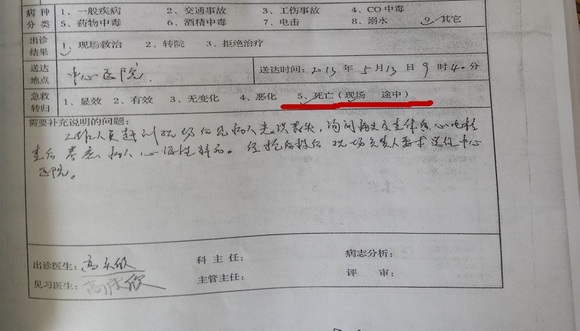 病种分类 1、一般疾病 2、交通事故 3、工伤事故 4、CO中毒
5、药物中毒 6、酒精中毒 7、电击 8、溺水 9、其它
出诊结果 1、现场救治 2、转院 3、拒绝治疗
送达地点 中心医院 送达时间：2013年5月13日9时40分
急救转归 1、显效 2、有效 3、无变化 4、恶化 5、死亡（现场 途中）
需要补充说明的问题：
工作人员赶到现场后见病人意识丧失，询问病史及查体后心电检
查后考虑病人心源性猝死。经抢救后现场 要求送往中心
医院。
出诊医生： 科主任： 病志分析：
见习医生： 主管主任： 评审：